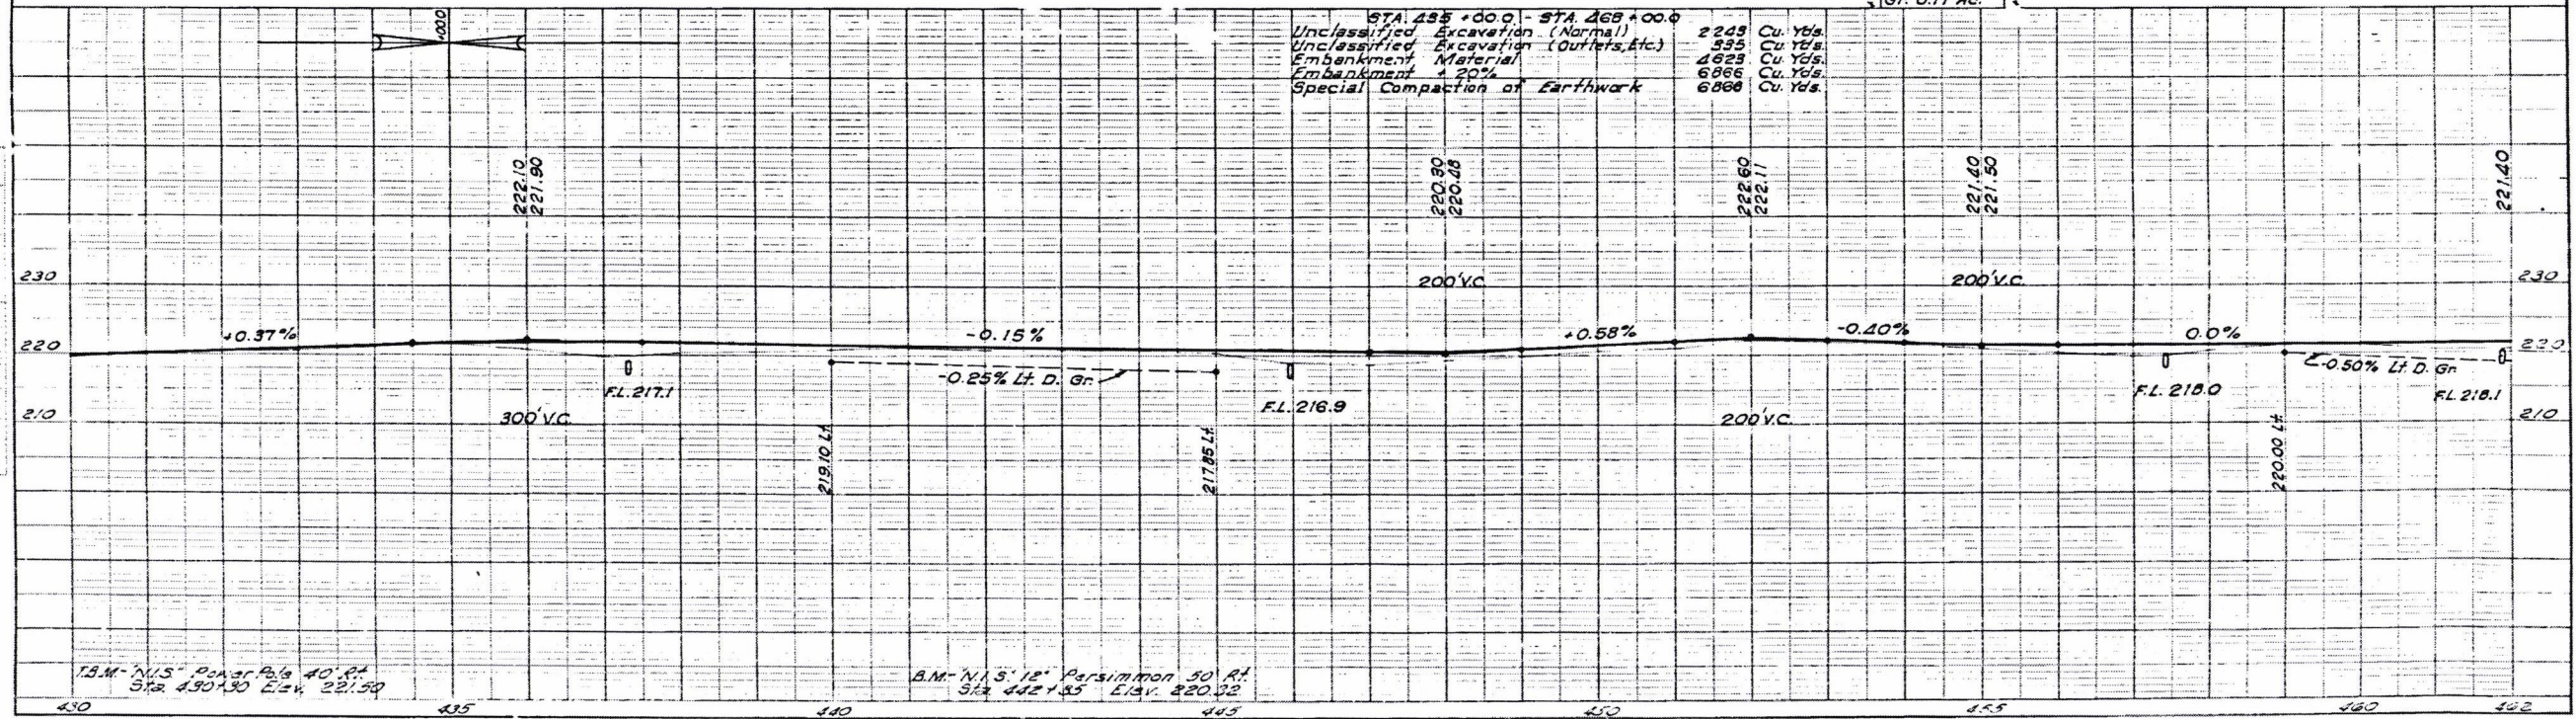 Gr. 0.17 Ac.
+00.0
STA. 435 +00.0 - STA. 468 +00.0
Unclassified Excavation (Normal) 2243 Cu. Yds.
Unclassified Excavation (Outlets, Etc.) 335 Cu. Yds.
Embankment Material 4623 Cu. Yds.
Embankment + 20% 6866 Cu. Yds.
Special Compaction of Earthwork 6866 Cu. Yds.
222.10
221.90
220.30
220.48
222.60
222.11
221.40
221.50
221.40
230
200' V.C.
200' V.C.
230
+0.37%
-0.15%
+0.58%
-0.40%
0.0%
220
220
-0.25% Lt. D. Gr.
-0.50% Lt. D. Gr.
F.L. 217.1
F.L. 216.9
F.L. 218.0
F.L. 218.1
210
300' V.C.
200' V.C.
210
219.10 Lt.
217.85 Lt.
220.00 Lt.
T.B.M.- "N.I.S." Power Pole 40' Rt.
Sta. 430+90 Elev. 221.50
B.M.- "N.I.S." 12" Persimmon 50' Rt.
Sta. 442+85 Elev. 220.32
430 435 440 445 450 455 460 462